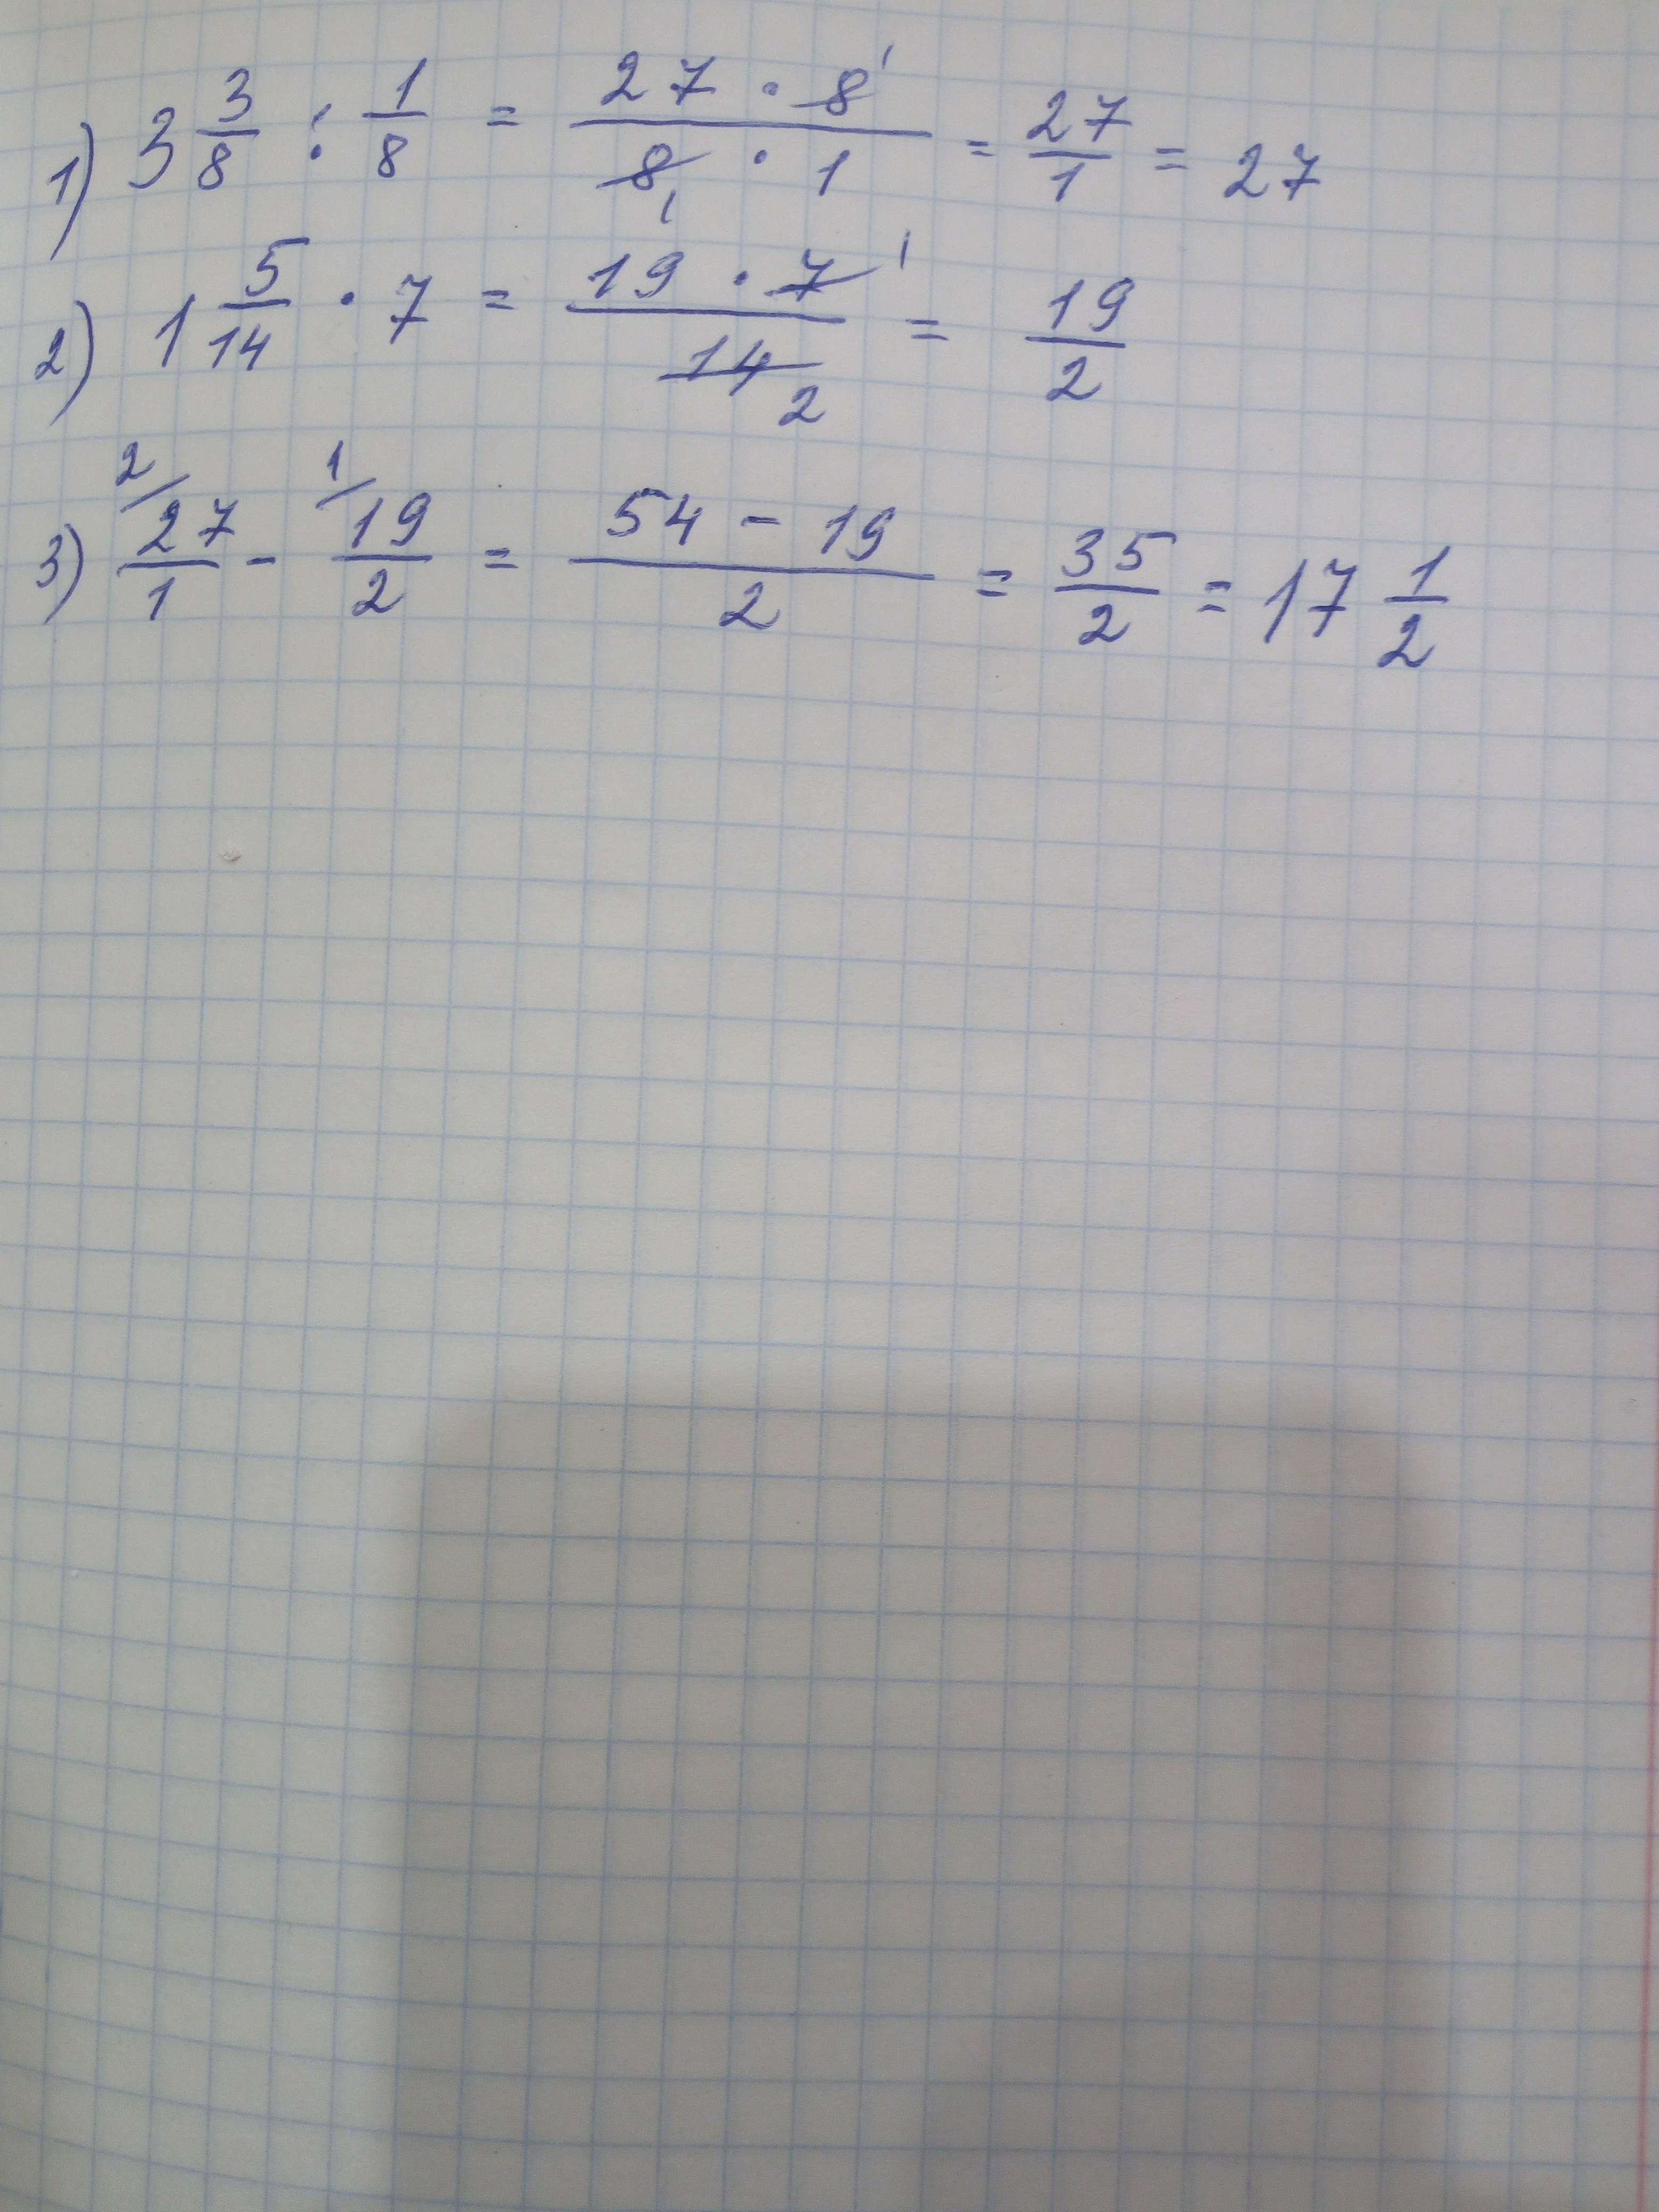 1) 3 3/8 : 1/8 = 27 · 8 1 / 8 1 · 1 = 27/1 = 27
2) 1 5/14 · 7 = 19 · 7 1 / 14 2 = 19/2
3) 2/ 27/1 - 1/ 19/2 = 54 - 19 / 2 = 35/2 = 17 1/2